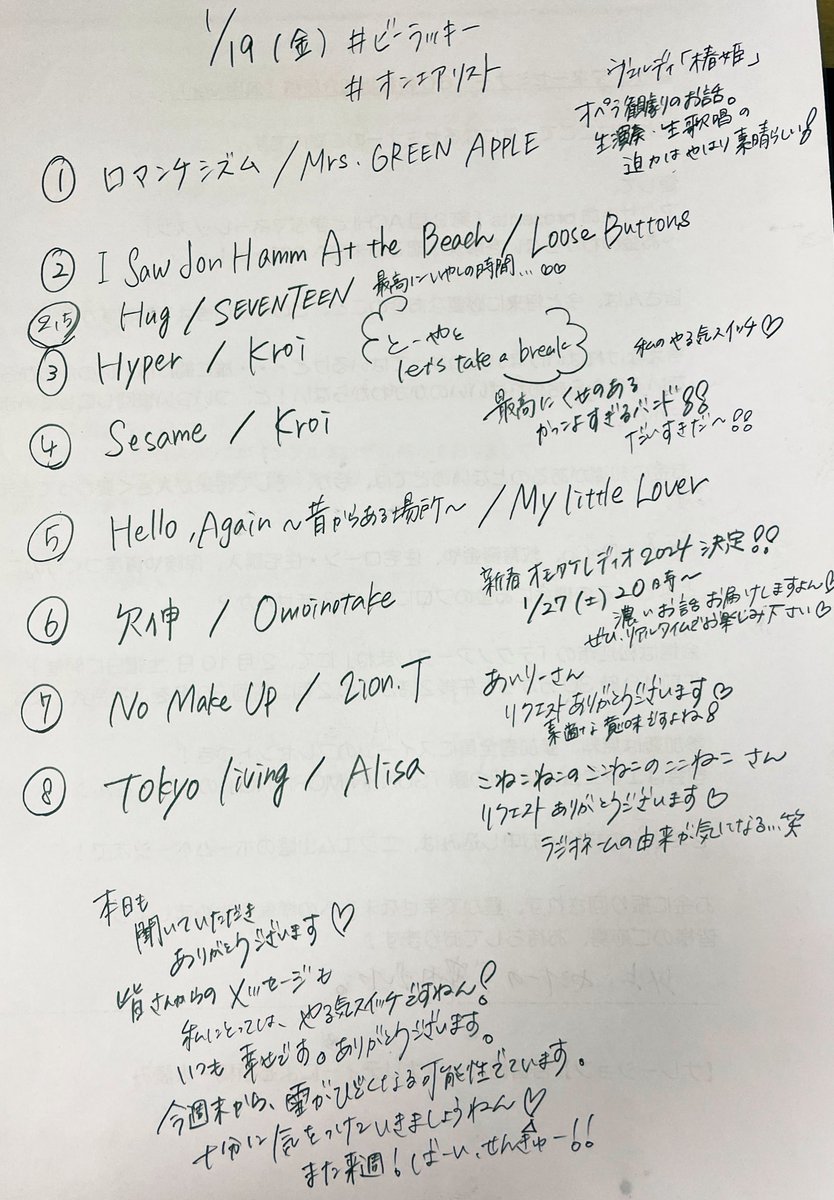 1/19(金) #ビーラッキー
#オンエアリスト
ヴェルディ「椿姫」
オペラ観劇のお話。
生演奏・生歌唱の
迫力はやはり素晴らしい!
① ロマンチシズム / Mrs. GREEN APPLE
② I Saw Jon Hamm At the Beach / Loose Buttons
2.5 Hug / SEVENTEEN 最高にいやしの時間...
③ Hyper / Kroi
とーやと
let's take a break
私のやる気スイッチ♡
④ Sesame / Kroi
最高にくせのある
かっこよすぎるバンド!!
だいすきだ〜!!
⑤ Hello, Again〜昔からある場所〜 / My little Lover
⑥ 欠伸 / Omoinotake
新春オモタケレディオ2024 決定!!
1/27(土)20時〜
濃いお話お届けしますよん♡
ぜひ、リアルタイムでお楽しみ下さい♡
⑦ No Make Up / Zion.T
あいりーさん
リクエストありがとうございます♡
素適な趣味ですよね!
⑧ Tokyo living / Alisa
こねこねこのここねこのここねこ さん
リクエストありがとうございます♡
ラジオネームの由来が気になる...笑
本日も
聞いていただき
ありがとうございます♡
皆さんからのメッセージも
私にとっては、やる気スイッチですねん!
いつも幸せです。ありがとうございます。
今週末から、雪がひどくなる可能性でています。
十分に気をつけていきましょうねん♡
また来週!ばーい、せんきゅー!!